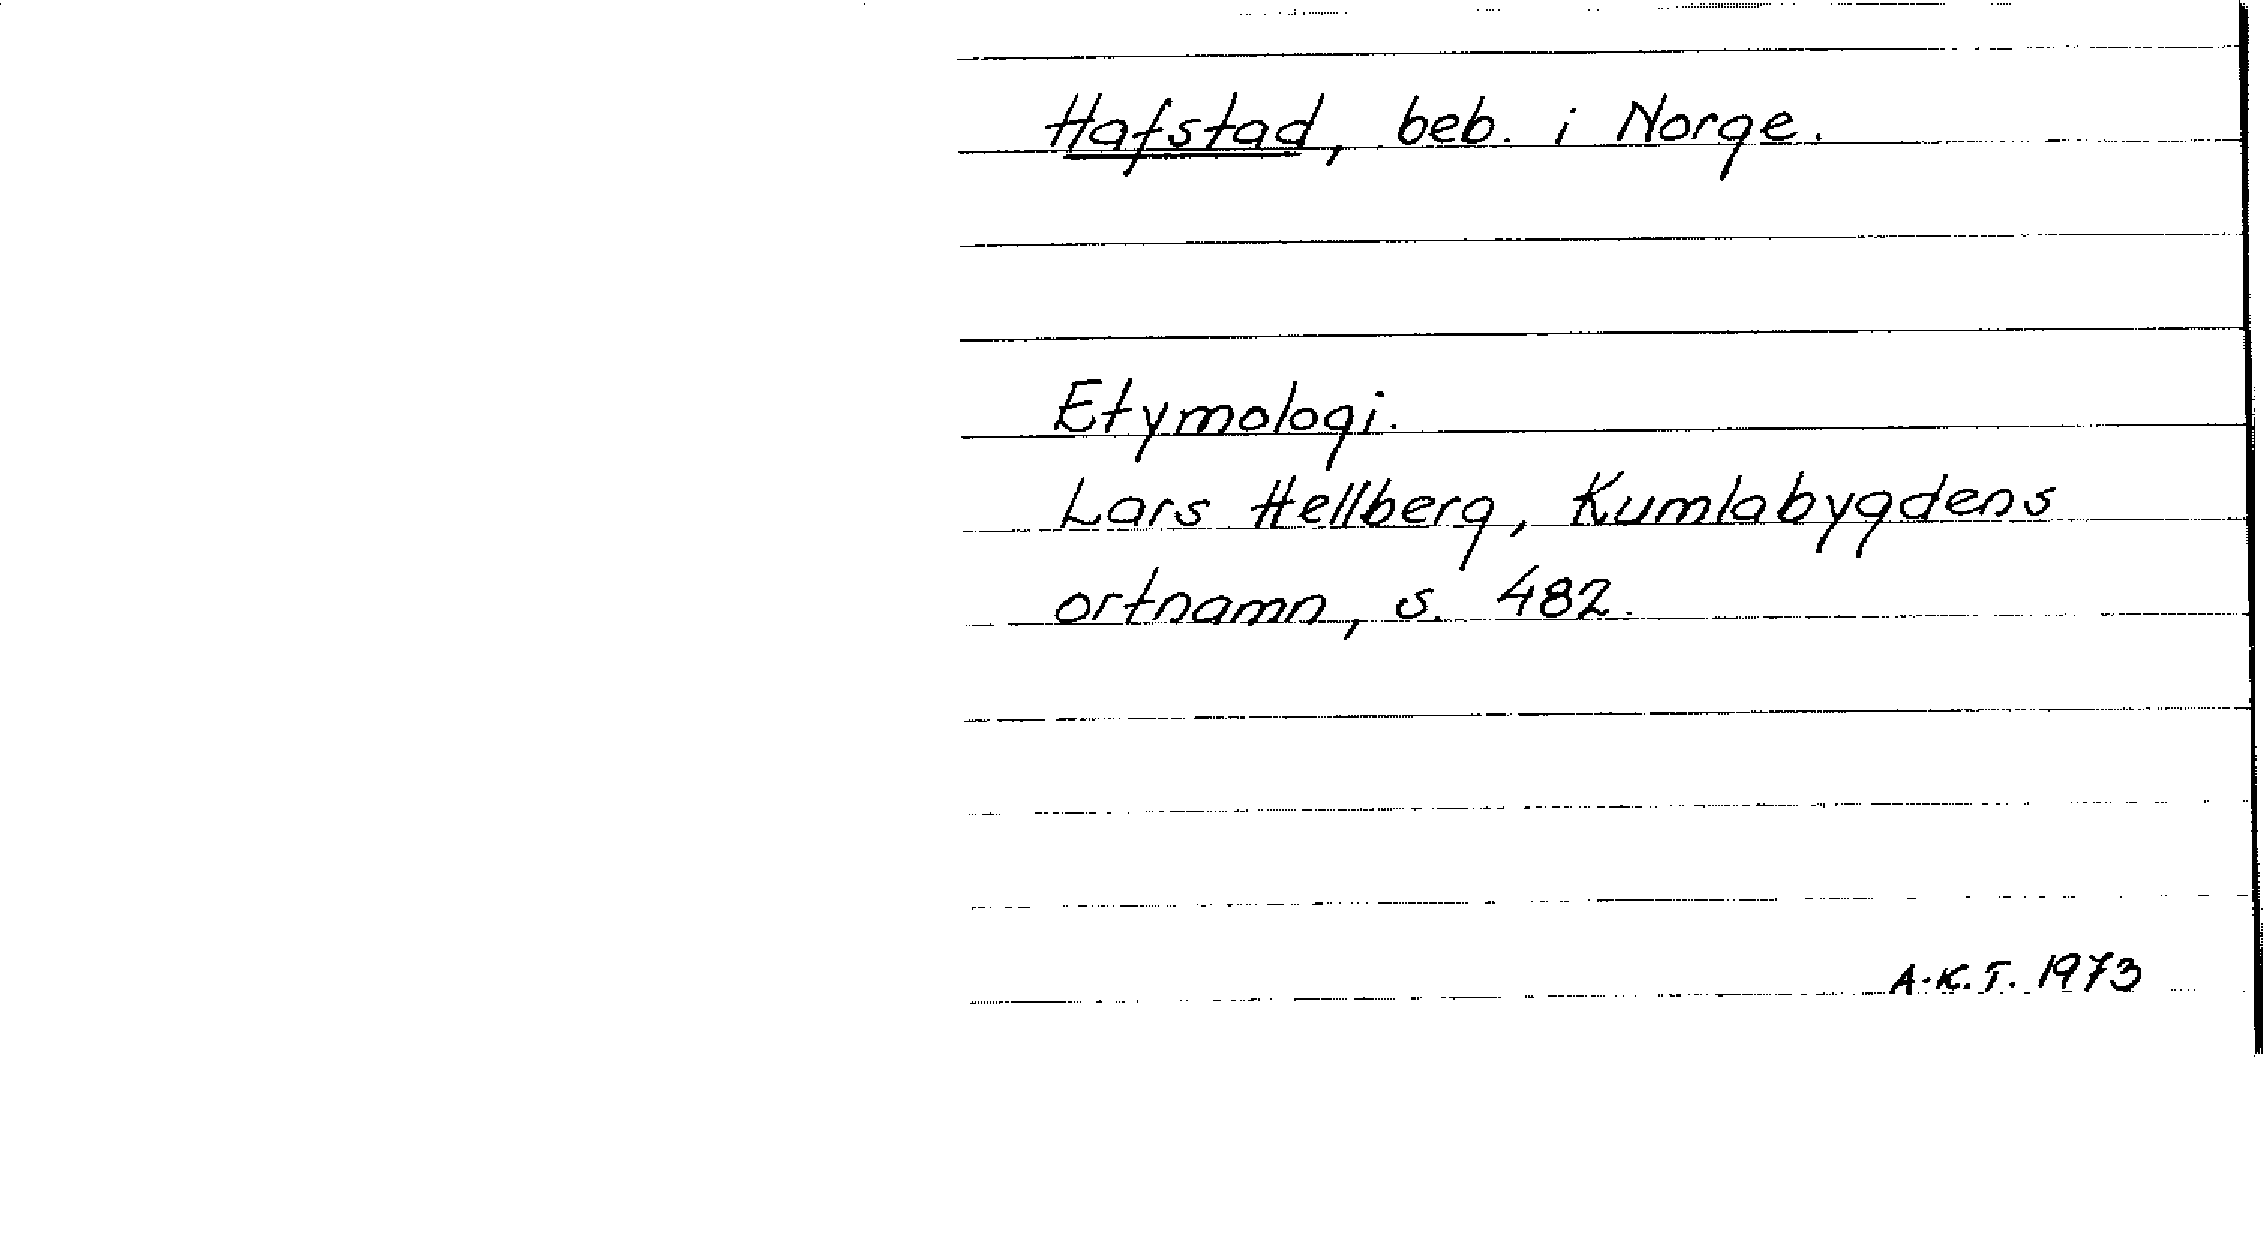 Hafstad, beb. i Norge.
Etymologi.
Lars Hellberg, Kumlabygdens
ortnamn, s. 482.
A-K.T. 1973